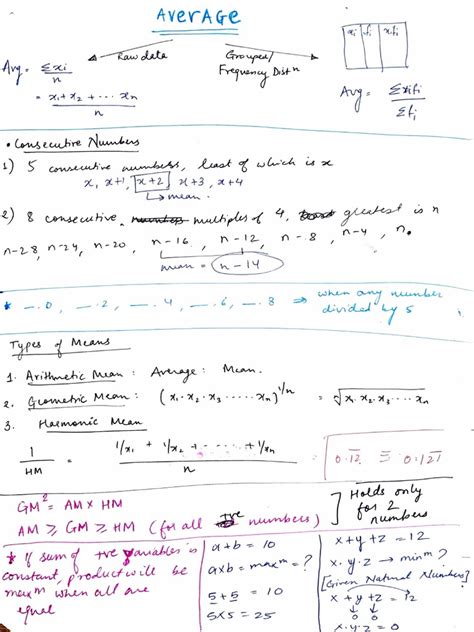 AVERAGE
Raw data
Grouped/
Frequency Distⁿ
xi fi xifi
Avg = Σxi / n
= x₁+x₂+ ... xn / n
Avg = Σxifi / Σfi
• Consecutive Numbers
1) 5 consecutive numbers, least of which is x
x, x+1, x+2, x+3, x+4
mean.
2) 8 consecutive multiples of 4, greatest is n
n-28, n-24, n-20, n-16, n-12, n-8, n-4, n.
mean = n-14
* —.0, —.2, —.4, —.6, —.8 ⇒ when any number
divided by 5
Types of Means
1. Arithmetic Mean : Average : Mean.
2. Geometric Mean : (x₁.x₂.x₃.....xn)^1/n = √x₁.x₂.x₃....xn
3. Harmonic Mean
1/HM = 1/x₁ + 1/x₂ + ...... + 1/xn / n
GM² = AM × HM
AM ≥ GM ≥ HM (for all +ve numbers)
] Holds only
for 2
numbers
* If sum of +ve variables is
constant, product will be
maxᵐ when all are
equal
a+b = 10
a×b = maxᵐ ?
5+5 = 10
5×5 = 25
x+y+z = 12
x.y.z → minᵐ ?
[Given Natural Numbers]
x+y+z = 12
↓ ↓
0 0
x.y.z = 0